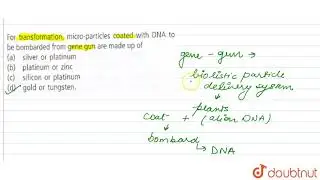 For transformation, micro-particles coated with DNA to
be bombarded from gene gun are made up of
(a) silver or platinum
(b) platinum or zinc
(c) silicon or platinum
(d) gold or tungsten.
gene - gun →
biolistic particle
delivery system
→ plants
coat + (alien DNA)
bombard
→ DNA
doubtnut